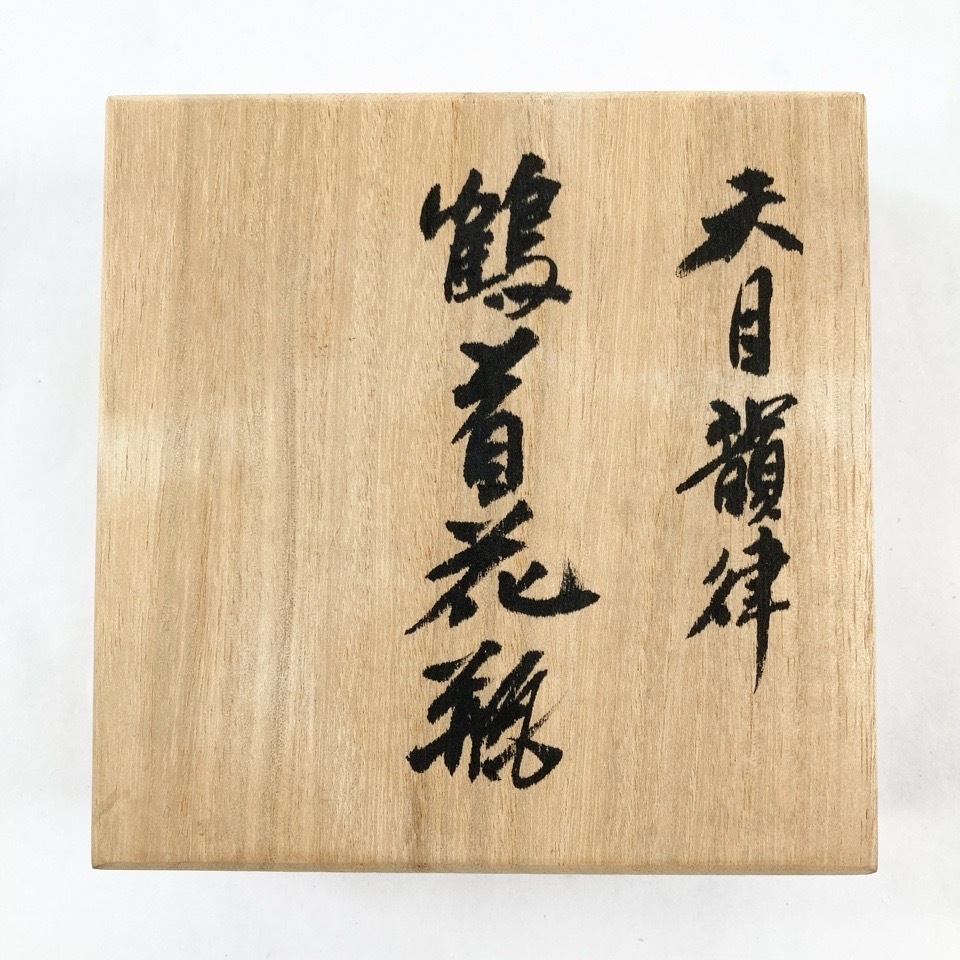 天目韻律
鶴首花瓶